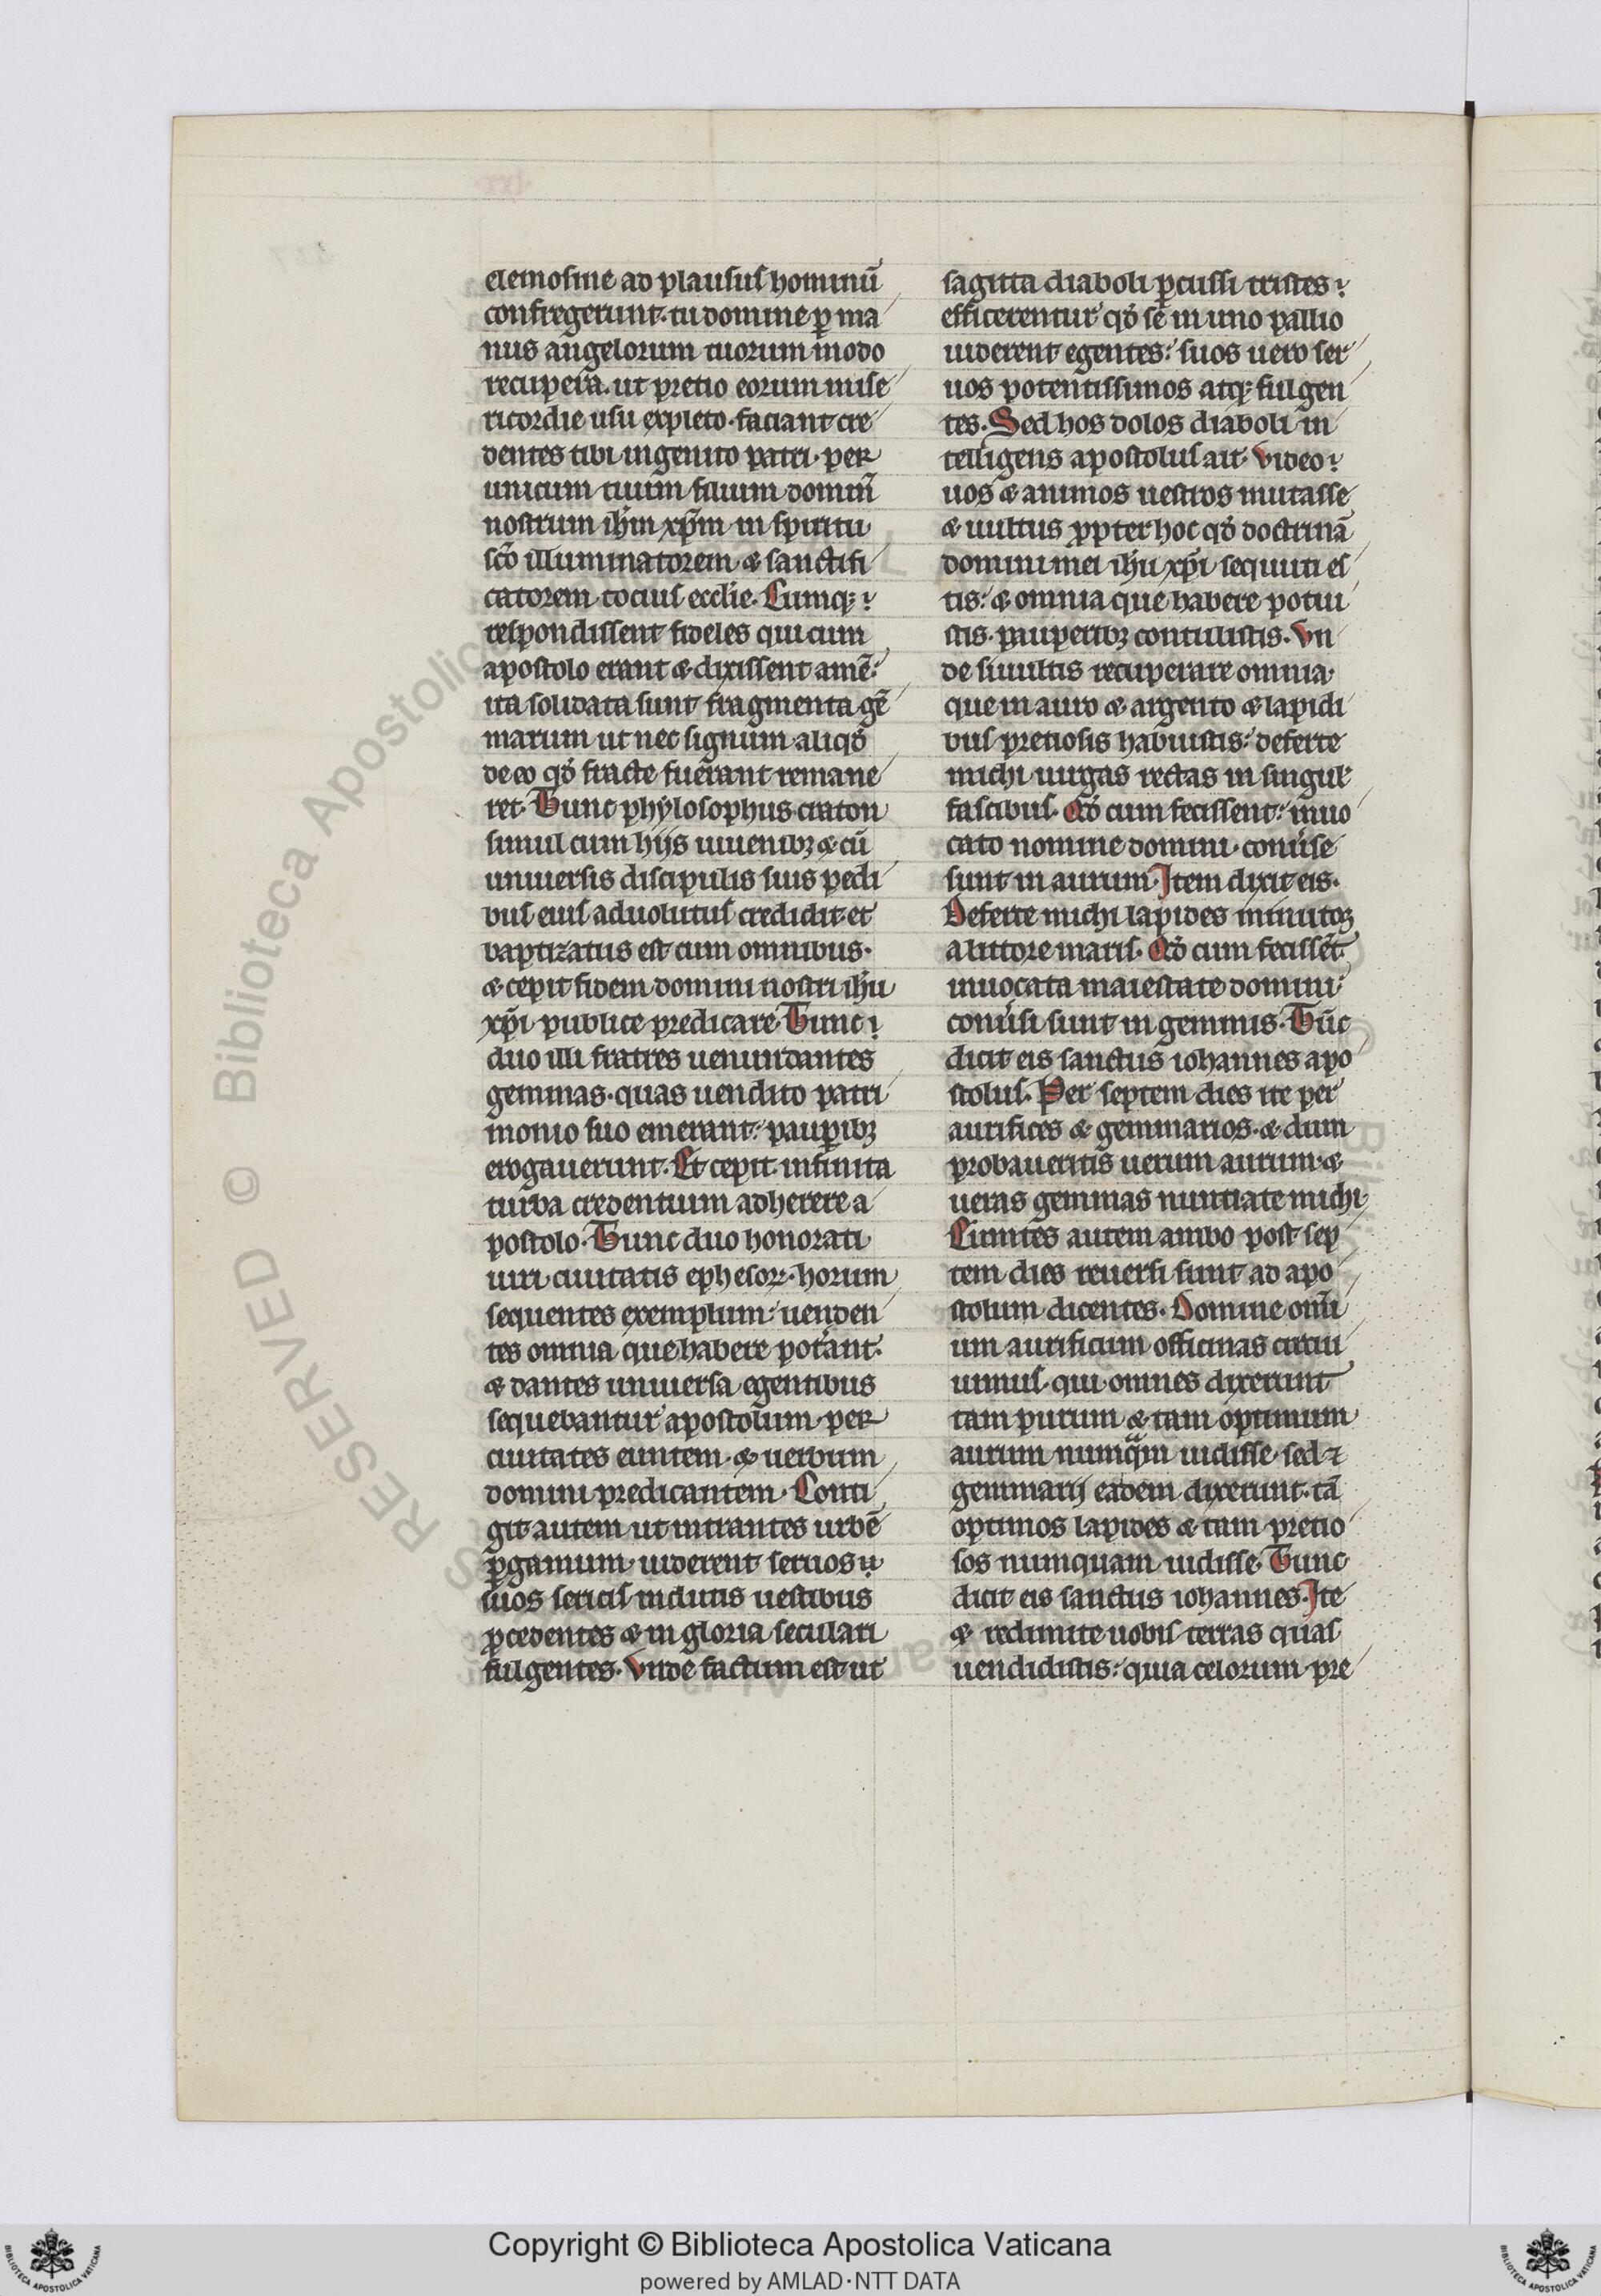 elemosine ad plausus hominū
confregerunt. tu domine ꝑ ma
nus angelorum tuorum modo
recupera. ut pretio eorum mise
ricordie usu expleto. faciant cre
dentes tibi ingenito patri. per
unicum tuum filium dominū
nostrum ihm̄ xp̄m in spiritu
sc̄o illuminatorem & sanctifi
catorem tocius ecclie. Cumqꝫ
respondissent fideles qui cum
apostolo erant & dixissent amē:
ita solidata sunt fragmenta gē
marum ut nec signum aliqđ
de eo qđ fracte fuerant remane
ret. Tunc phylosophus craton
simul cum hijs iuuenibꝫ & cū
uniuersis discipulis suis pedi
bus eius aduolutus credidit et
baptizatus est cum omnibus.
& cepit fidem domini nostri ihū
xp̄i publice predicare. Tunc
duo illi fratres uenundantes
gemmas. quas uendito patri
monio suo emerant: pauꝑibꝫ
erogauerunt. Et cepit infinita
turba credentium adherere a
postolo. Tunc duo honorati
uiri ciuitatis ephesoꝝ. horum
sequentes exemplum: uenden
tes omnia que habere potant:
& dantes uniuersa egentibus
sequebantur apostolum per
ciuitates euntem. & uerbum
domini predicantem. Conti
git autem ut intrantes urbē
ꝑgamum. uiderent seruos
suos sericis indutis uestibus
ꝓcedentes & in gloria seculari
fulgentes. Vnde factum est ut
sagitta diaboli ꝑcussi tristes
efficerentur qđ se in uno pallio
uiderent egentes: suos uero ser
uos potentissimos atqꝫ fulgen
tes. Sed hos dolos diaboli in
telligens apostolus ait. Video
uos & animos uestros mutasse
& uultus ꝓpter hoc qđ doctrinā
domini mei ihū xp̄i sequuti es
tis: & omnia que habere potui
stis. pauperibꝫ contulistis. Vn
de si uultis recuperare omnia
que in auro & argento & lapidi
bus pretiosis habuistis: deferte
michi uirgas rectas in singul'
fascibus. Qđ cum fecissent: inuo
cato nomine domini. conu'se
sunt in aurum. Item dixit eis.
Deferte michi lapides minutos
a littore maris. Qđ cum fecissēt
inuocata maiestate domini:
conu'si sunt in gemmis. Tūc
dicit eis sanctus iohannes apo
stolus. Per septem dies ite per
aurifices & gemmarios. & dum
probaueritis uerum aurum &
ueras gemmas nuntiate michi.
Euntes autem ambo post sep
tem dies reuersi sunt ad apo
stolum dicentes. Domine omni
um aurificum officinas circu
iuimus. qui omnes dixerunt
tam purum & tam optimum
aurum numqam uidisse. sed ⁊
gemmarij eadem dixerunt. tā
optimos lapides & tam pretio
sos numquam uidisse. Tunc
dicit eis sanctus iohannes. Ite
& redimite uobis terras quas
uendidistis: quia celorum pre
RESERVED © Biblioteca Apostolica
Copyright © Biblioteca Apostolica Vaticana
powered by AMLAD·NTT DATA